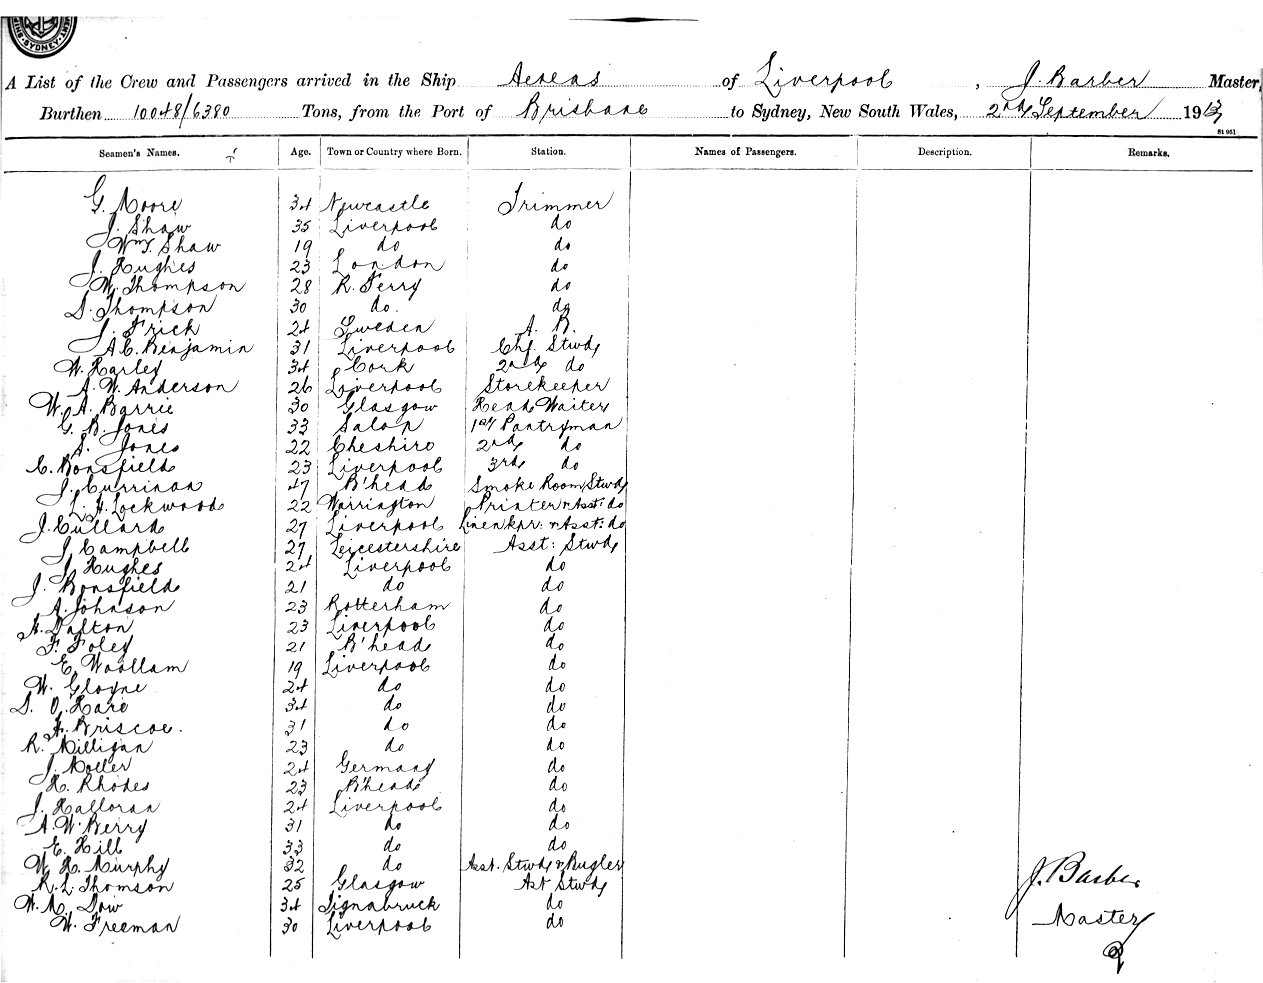 SYDNEY
A List of the Crew and Passengers arrived in the Ship Aeneas of Liverpool, J. Barber Master,
Burthen 10048/6380 Tons, from the Port of Brisbane to Sydney, New South Wales, 2nd September 1913
St 951
Seamen's Names. Age. Town or Country where Born. Station. Names of Passengers. Description. Remarks.
G. Moore 34 Newcastle Trimmer
J. Shaw 35 Liverpool do
Wm T. Shaw 19 do do
J. Hughes 23 London do
W. Thompson 28 R. Ferry do
S. Thompson 30 do. do
J. Frick 24 Sweden A. B.
A. C. Benjamin 31 Liverpool Chf. Stwd
W. Harley 34 Cork 2nd do
A. W. Anderson 26 Liverpool Storekeeper
W. A. Barrie 30 Glasgow Head Waiter
G. B. Jones 33 Salop 1st Pantryman
S. Jones 22 Cheshire 2nd do
C. Bonsfield 23 Liverpool 3rd do
J. Currinan 47 B'head Smoke Room Stwd
L. H. Lockwood 22 Warrington Printer & Asst: do
J. Cullard 27 Liverpool Linenkpr: & Asst: do
J. Campbell 27 Leicestershire Asst: Stwd
J. Hughes 24 Liverpool do
J. Bonsfield 21 do do
A. Johnson 23 Rotterham do
H. Dalton 23 Liverpool do
F. Foley 21 B'head do
E. Woollam 19 Liverpool do
W. Gloyne 24 do do
S. O. Hare 34 do do
H. Briscoe. 31 do do
R. Milligan 23 do do
J. Moller 24 Germany do
H. Rhodes 23 B'head do
J. Halloran 24 Liverpool do
A. W. Berry 31 do do
E. Hill 33 do do
W. H. Murphy 32 do Asst. Stwd & Bugler
R. L. Thomson 25 Glasgow Ast Stwd
W. M. Dow 34 Lignabruck do
W. Freeman 30 Liverpool do
J. Barber
Master